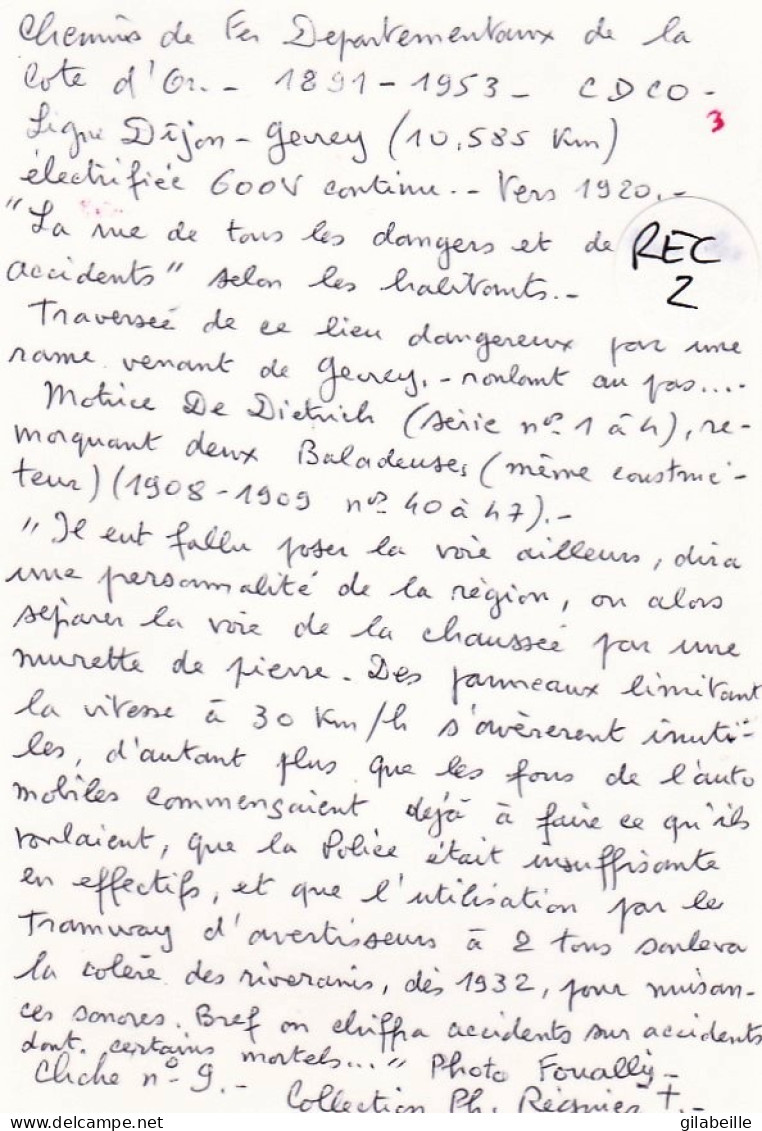 Chemins de Fer Departementaux de la
Cote d'Or. - 1891 - 1953 - CDCO -
3
Ligne Dijon - Gevrey (10,585 Km)
électrifiée 600V continu. - Vers 1920. -
"La rue de tous les dangers et de
REC
2
accidents" selon les habitants. -
Traversée de ce lieu dangereux par une
rame venant de Gevrey, - roulant au pas... -
Motrice De Dietrich (série nos 1 à 4), re-
morquant deux Baladeuses (même construc-
teur) (1908 - 1909 nos 40 à 47). -
"Il eut fallu poser la voie ailleurs, dira
une personnalité de la région, ou alors
séparer la voie de la chaussée par une
murette de pierre. Des panneaux limitant
la vitesse à 30 Km/h s'avèrerent inuti-
les, d'autant plus que les fous de l'auto
mobiles commençaient déjà à faire ce qu'ils
voulaient, que la Police était insuffisante
en effectifs, et que l'utilisation par le
Tramway d'avertisseurs à 2 tons souleva
la colère des riverains, dès 1932, pour nuisan-
ces sonores. Bref on chiffra accidents sur accidents
dont certains mortels..." Photo
Cliché n° 9. -
Collection Ph. Régnier †. -
delcampe.net
gilabeille